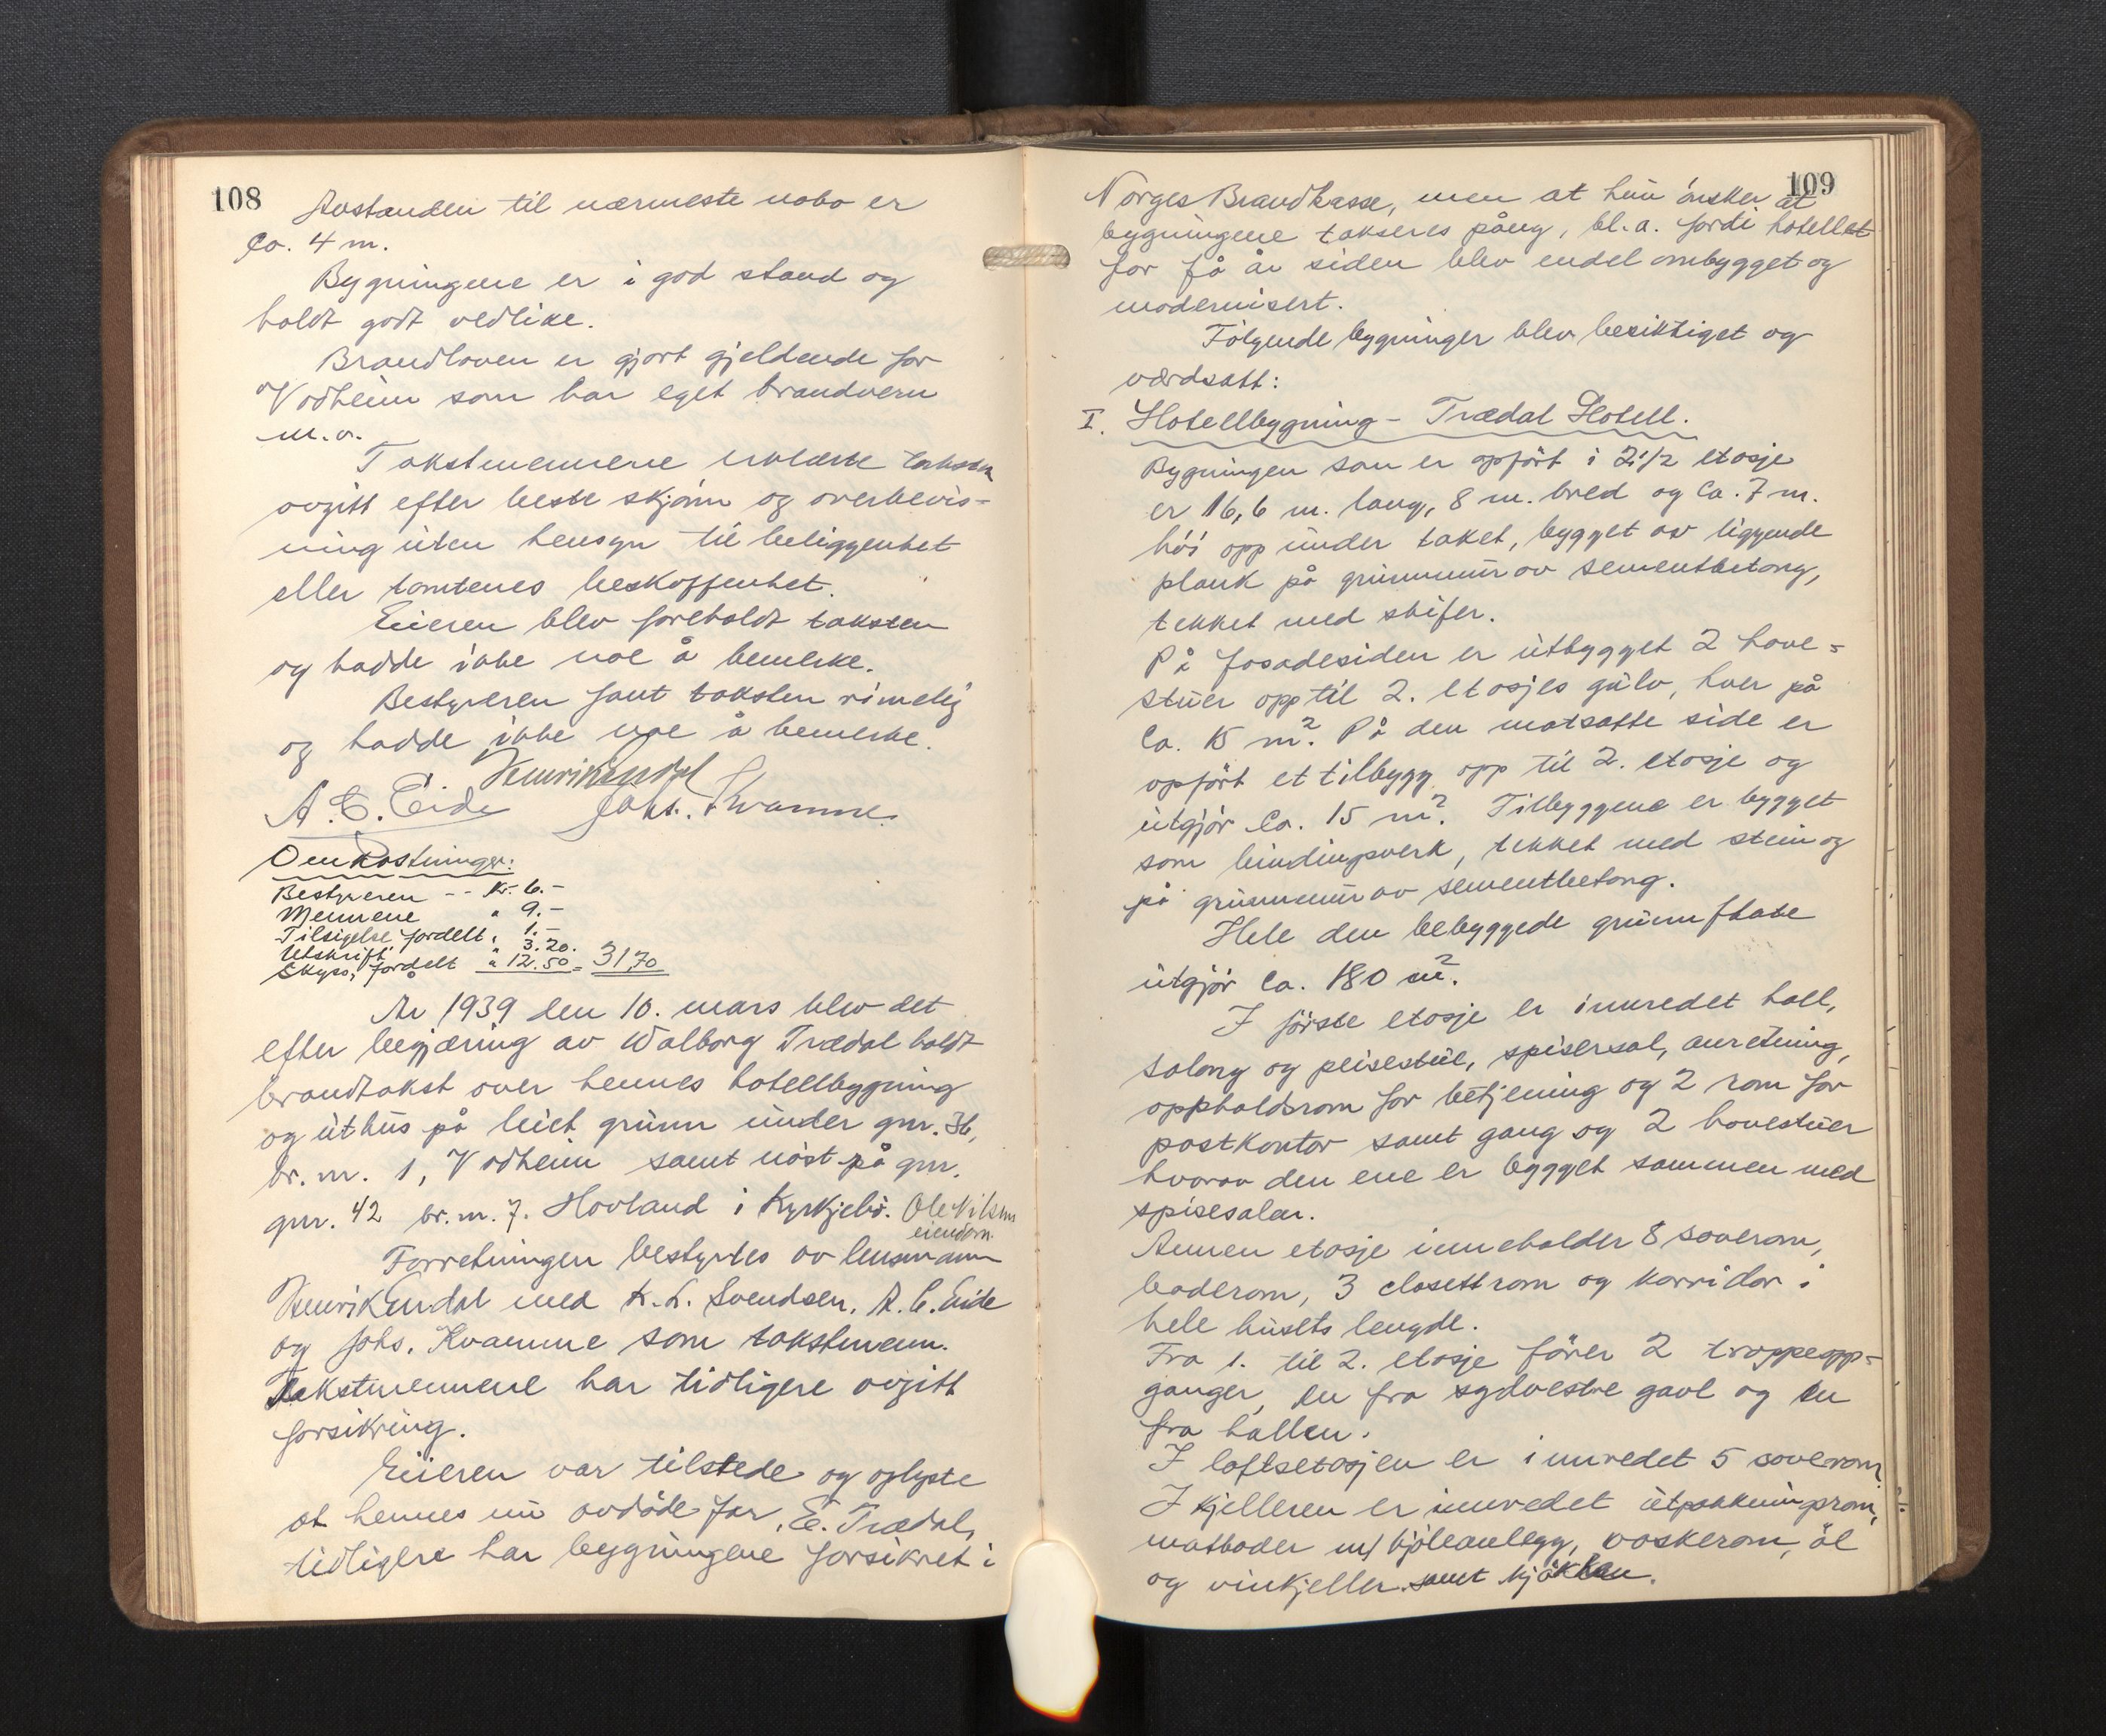 108
Avstanden til nærmeste nabo er
ca. 4 m.
Bygningene er i god stand og
holdt godt vedlike.
Brandloven er gjort gjeldende for
Vadheim som har eget brandvern
m.v.
Takstmennene erklærte taksten
avgitt efter beste skjønn og overbevis-
ning uten hensyn til beliggenhet
eller tomtenes beskaffenhet.
Eieren blev foreholdt taksten
og hadde ikke noe å bemerke.
Bestyreren fant taksten rimelig
og hadde ikke noe å bemerke.
Henrik Endal
A. C. Eide Johs. Kvamme.
Omkostninger:
Bestyreren -- kr. 6.-
Mennene " 9.-
Tilsigelse, fordelt " 1.-
Utskrift " 3.20.
Skyss, fordelt " 12.50 = 31,70
År 1939 den 10. mars blev det
efter begjæring av Walborg Trædal holdt
brandtakst over hennes hotellbygning
og uthus på leiet grunn under gnr. 36,
br. nr. 1, Vadheim samt nøst på gnr.
gnr. 42 br. nr. 7. Hovland i Kyrkjebø. Ole Nilsens
eiendom.
Forretningen bestyrtes av lensmann
Henrik Endal med K. L. Svendsen, A. C. Eide
og Johs. Kvamme som takstmenn.
Takstmennene har tidligere avgitt
forsikring.
Eieren var tilstede og oplyste
at hennes nu avdøde far, E. Trædal,
tidligere har bygningene forsikret i
109
Norges Brandkasse, men at hun ønsker at
bygningene takseres påny, bl. a. fordi hotellet
for få år siden blev endel ombygget og
modernisert.
Følgende bygninger blev besiktiget og
verdsatt:
I. Hotellbygning - Trædal Hotell.
Bygningen som er opført i 2 1/2 etasje
er 16,6 m. lang, 8 m. bred og ca. 7 m.
høi opp under taket, bygget av liggende
plank på grunnmur av sementbetong,
tekket med skifer.
På fasadesiden er utbygget 2 have-
stuer opp til 2. etasjes gulv, hver på
ca. 15 m². På den motsatte side er
opført et tilbygg opp til 2. etasje og
utgjør ca. 15 m². Tilbyggene er bygget
som bindingsverk, tekket med stein og
på grunnmur av sementbetong.
Hele den bebyggede grunnflate
utgjør ca. 180 m².
I første etasje er innredet hall,
salong og peisestue, spisersal, anretning,
oppholdsrom for betjening og 2 rom for
postkontor samt gang og 2 havestuer
hvorav den ene er bygget sammen med
spisesalen.
Annen etasje inneholder 8 soverom,
baderom, 3 closettrom og korridor i
hele husets lengde.
Fra 1. til 2. etasje fører 2 trappeopp-
ganger, en fra sydvestre gavl og en
fra hallen.
I loftsetasjen er innredet 5 soverom
I kjelleren er innredet utpakningsrom,
matboder m/ kjøleanlegg, vaskerom, øl
og vinkjeller samt kjøkken.